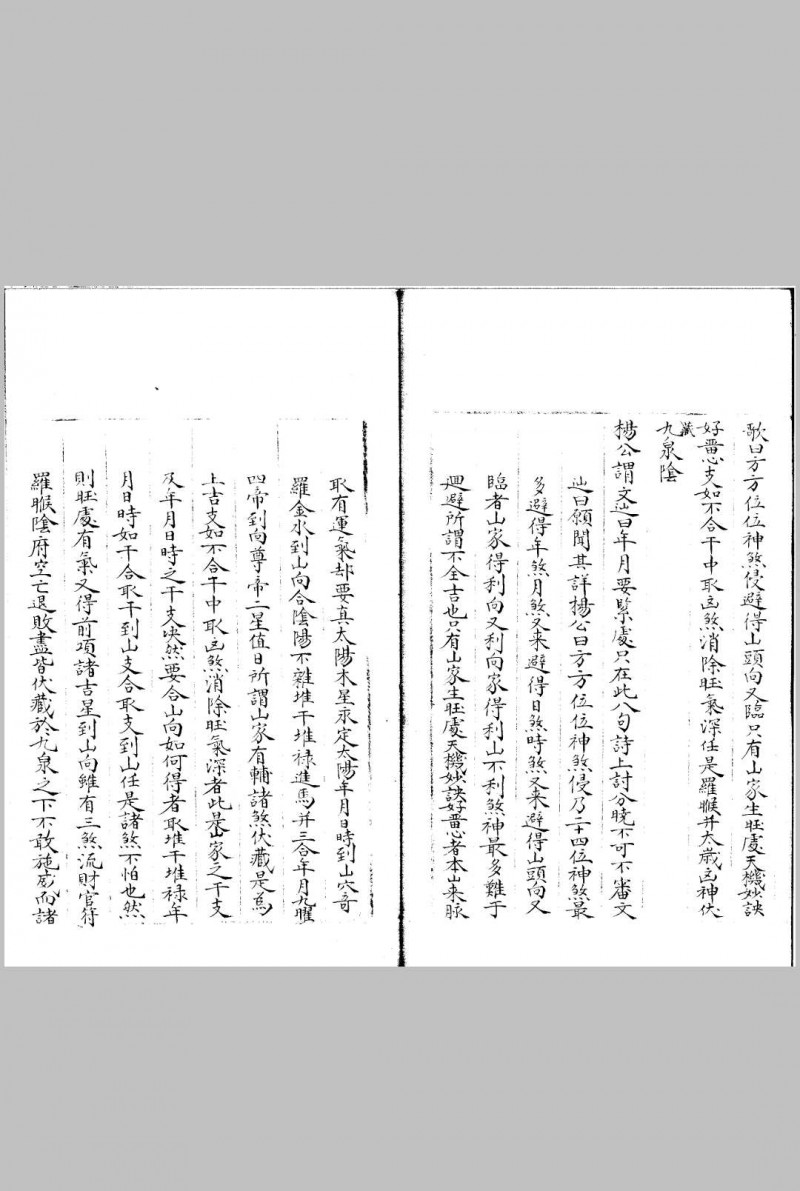 歌曰方方位位神煞侵避得山頭向又臨只有山家生旺處天機妙訣
好畱心支如不合干中取凶煞消除旺氣深任是羅睺并太歲凶神伏
藏
九泉陰
楊公謂文辿曰年月要緊處只在此八句詩上討分曉不可不審文
辿曰願聞其詳楊公曰方方位位神煞侵乃二十四位神煞最
多避得年煞月煞又來避得日煞時煞又來避得山頭向又
臨者山家得利向又利向家得利山不利煞神最多難于
廻避所謂不全吉也只有山家生旺處天機妙訣好畱心者本山来脉
取有運氣却要真太陽木星永定太陽年月日時到山穴奇
羅金水到山向合陰陽不雜堆干堆祿進馬并三合年月九曜
四帝到向尊帝二星值日所謂山家有輔諸煞伏藏是爲
上吉支如不合干中取凶煞消除旺氣深者此是山家之干支
及年月日時之干支決然要合山向如何得者取堆干堆祿年
月日時如干合取干到山支合取支到山任是諸煞不怕也然
則旺處有氣又得前項諸吉星到山向雖有三煞流財官符
羅睺陰府空亡退敗盡皆伏藏於九泉之下不敢施威而諸